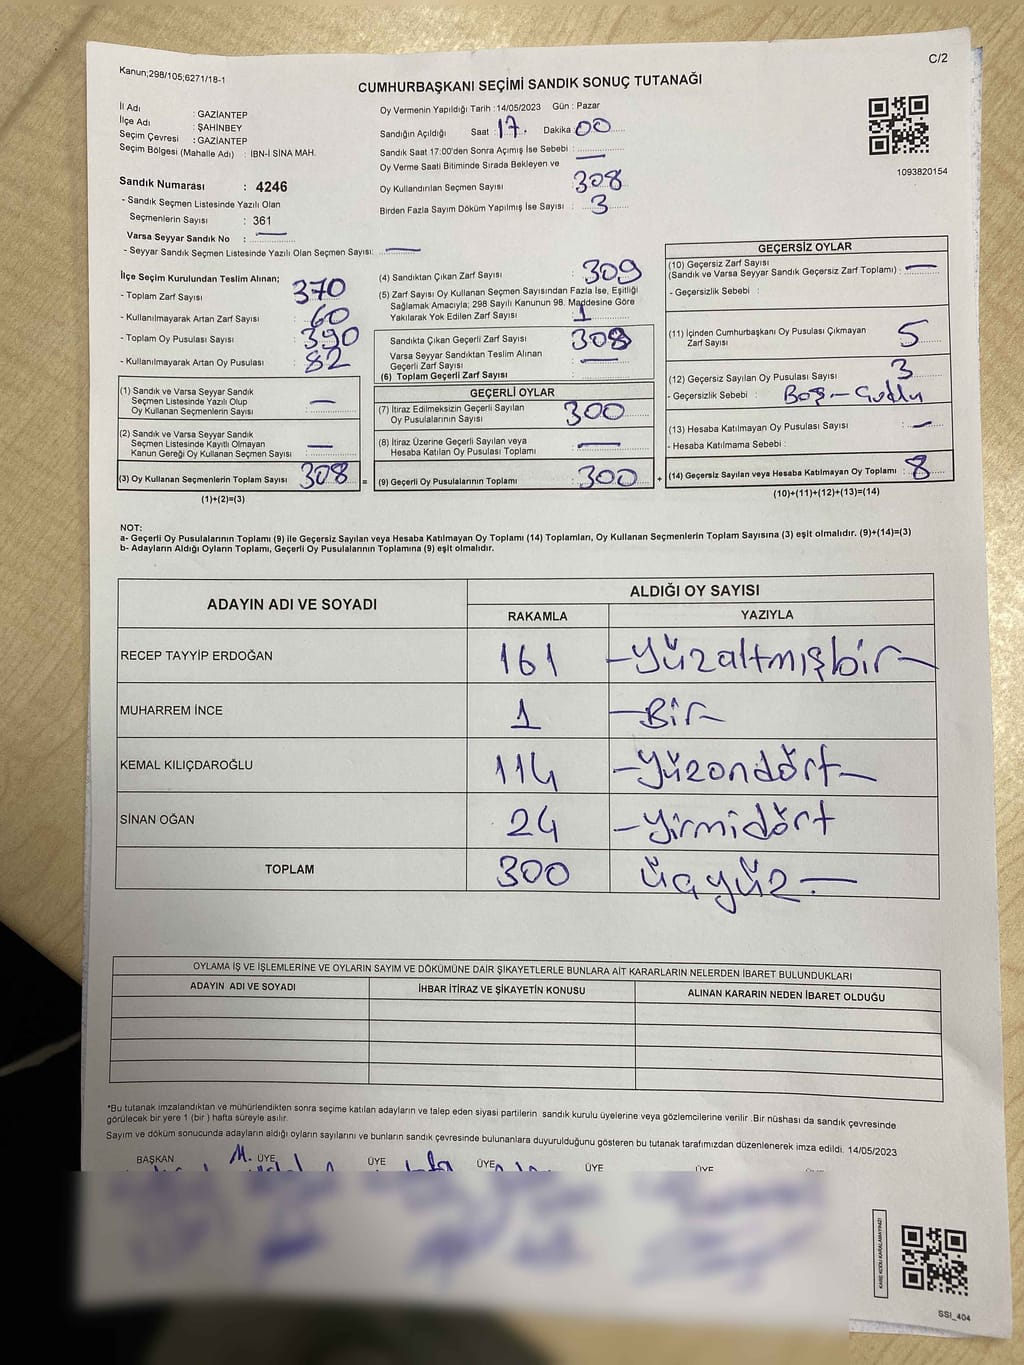 Kanun;298/105;6271/18-1
C/2
CUMHURBAŞKANI SEÇİMİ SANDIK SONUÇ TUTANAĞI
İl Adı : GAZİANTEP
İlçe Adı : ŞAHİNBEY
Seçim Çevresi : GAZİANTEP
Seçim Bölgesi (Mahalle Adı) : İBN-İ SİNA MAH.
Sandık Numarası : 4246
- Sandık Seçmen Listesinde Yazılı Olan
Seçmenlerin Sayısı : 361
Varsa Seyyar Sandık No : —
- Seyyar Sandık Seçmen Listesinde Yazılı Olan Seçmen Sayısı: —
Oy Vermenin Yapıldığı Tarih : 14/05/2023 Gün : Pazar
Sandığın Açıldığı Saat : 17. Dakika 00
Sandık Saat 17:00'den Sonra Açımış İse Sebebi : —
Oy Verme Saati Bitiminde Sırada Bekleyen ve
Oy Kullandırılan Seçmen Sayısı 308
Birden Fazla Sayım Döküm Yapılmış İse Sayısı : 3
1093820154
İlçe Seçim Kurulundan Teslim Alınan;
- Toplam Zarf Sayısı : 370
- Kullanılmayarak Artan Zarf Sayısı : 60
- Toplam Oy Pusulası Sayısı : 390
- Kullanılmayarak Artan Oy Pusulası : 82
(1) Sandık ve Varsa Seyyar Sandık
Seçmen Listesinde Yazılı Olup
Oy Kullanan Seçmenlerin Sayısı : —
(2) Sandık ve Varsa Seyyar Sandık
Seçmen Listesinde Kayıtlı Olmayan
Kanun Gereği Oy Kullanan Seçmen Sayısı : —
(3) Oy Kullanan Seçmenlerin Toplam Sayısı : 308 =
(1)+(2)=(3)
(4) Sandıktan Çıkan Zarf Sayısı : 309
(5) Zarf Sayısı Oy Kullanan Seçmen Sayısından Fazla İse, Eşitliği
Sağlamak Amacıyla; 298 Sayılı Kanunun 98. Maddesine Göre
Yakılarak Yok Edilen Zarf Sayısı : 1
Sandıkta Çıkan Geçerli Zarf Sayısı : 308
Varsa Seyyar Sandıktan Teslim Alınan
Geçerli Zarf Sayısı : —
(6) Toplam Geçerli Zarf Sayısı :
GEÇERLİ OYLAR
(7) İtiraz Edilmeksizin Geçerli Sayılan
Oy Pusulasının Sayısı : 300
(8) İtiraz Üzerine Geçerli Sayılan veya
Hesaba Katılan Oy Pusulası Toplamı : —
(9) Geçerli Oy Pusulalarının Toplamı : 300 +
GEÇERSİZ OYLAR
(10) Geçersiz Zarf Sayısı
(Sandık ve Varsa Seyyar Sandık Geçersiz Zarf Toplamı) : —
- Geçersizlik Sebebi :
(11) İçinden Cumhurbaşkanı Oy Pusulası Çıkmayan
Zarf Sayısı : 5
(12) Geçersiz Sayılan Oy Pusulası Sayısı : 3
- Geçersizlik Sebebi : Boş –
(13) Hesaba Katılmayan Oy Pusulası Sayısı : —
- Hesaba Katılmama Sebebi :
(14) Geçersiz Sayılan veya Hesaba Katılmayan Oy Toplamı : 8
(10)+(11)+(12)+(13)=(14)
NOT:
a- Geçerli Oy Pusulalarının Toplamı (9) ile Geçersiz Sayılan veya Hesaba Katılmayan Oy Toplamı (14) Toplamları, Oy Kullanan Seçmenlerin Toplam Sayısına (3) eşit olmalıdır. (9)+(14)=(3)
b- Adayların Aldığı Oyların Toplamı, Geçerli Oy Pusulalarının Toplamına (9) eşit olmalıdır.
ADAYIN ADI VE SOYADI ALDIĞI OY SAYISI
RAKAMLA YAZIYLA
RECEP TAYYİP ERDOĞAN 161 –Yüzaltmışbir–
MUHARREM İNCE 1 –Bir–
KEMAL KILIÇDAROĞLU 114 –Yüzondört–
SİNAN OĞAN 24 –Yirmidört
TOPLAM 300 üçyüz.–
OYLAMA İŞ VE İŞLEMLERİNE VE OYLARIN SAYIM VE DÖKÜMÜNE DAİR ŞİKAYETLERLE BUNLARA AİT KARARLARIN NELERDEN İBARET BULUNDUKLARI
ADAYIN ADI VE SOYADI İHBAR İTİRAZ VE ŞİKAYETİN KONUSU ALINAN KARARIN NEDEN İBARET OLDUĞU
*Bu tutanak imzalandıktan ve mühürlendikten sonra seçime katılan adayların ve talep eden siyasi partilerin sandık kurulu üyelerine veya gözlemcilerine verilir .Bir nüshası da sandık çevresinde
görülecek bir yere 1 (bir ) hafta süreyle asılır.
Sayım ve döküm sonucunda adayların aldığı oyların sayılarını ve bunların sandık çevresinde bulunanlara duyurulduğunu gösteren bu tutanak tarafımızdan düzenlenerek imza edildi. 14/05/2023
BAŞKAN M. ÜYE ÜYE ÜYE ÜYE ÜYE
KARE KODU KARALAMAYINIZ!
SSI_404